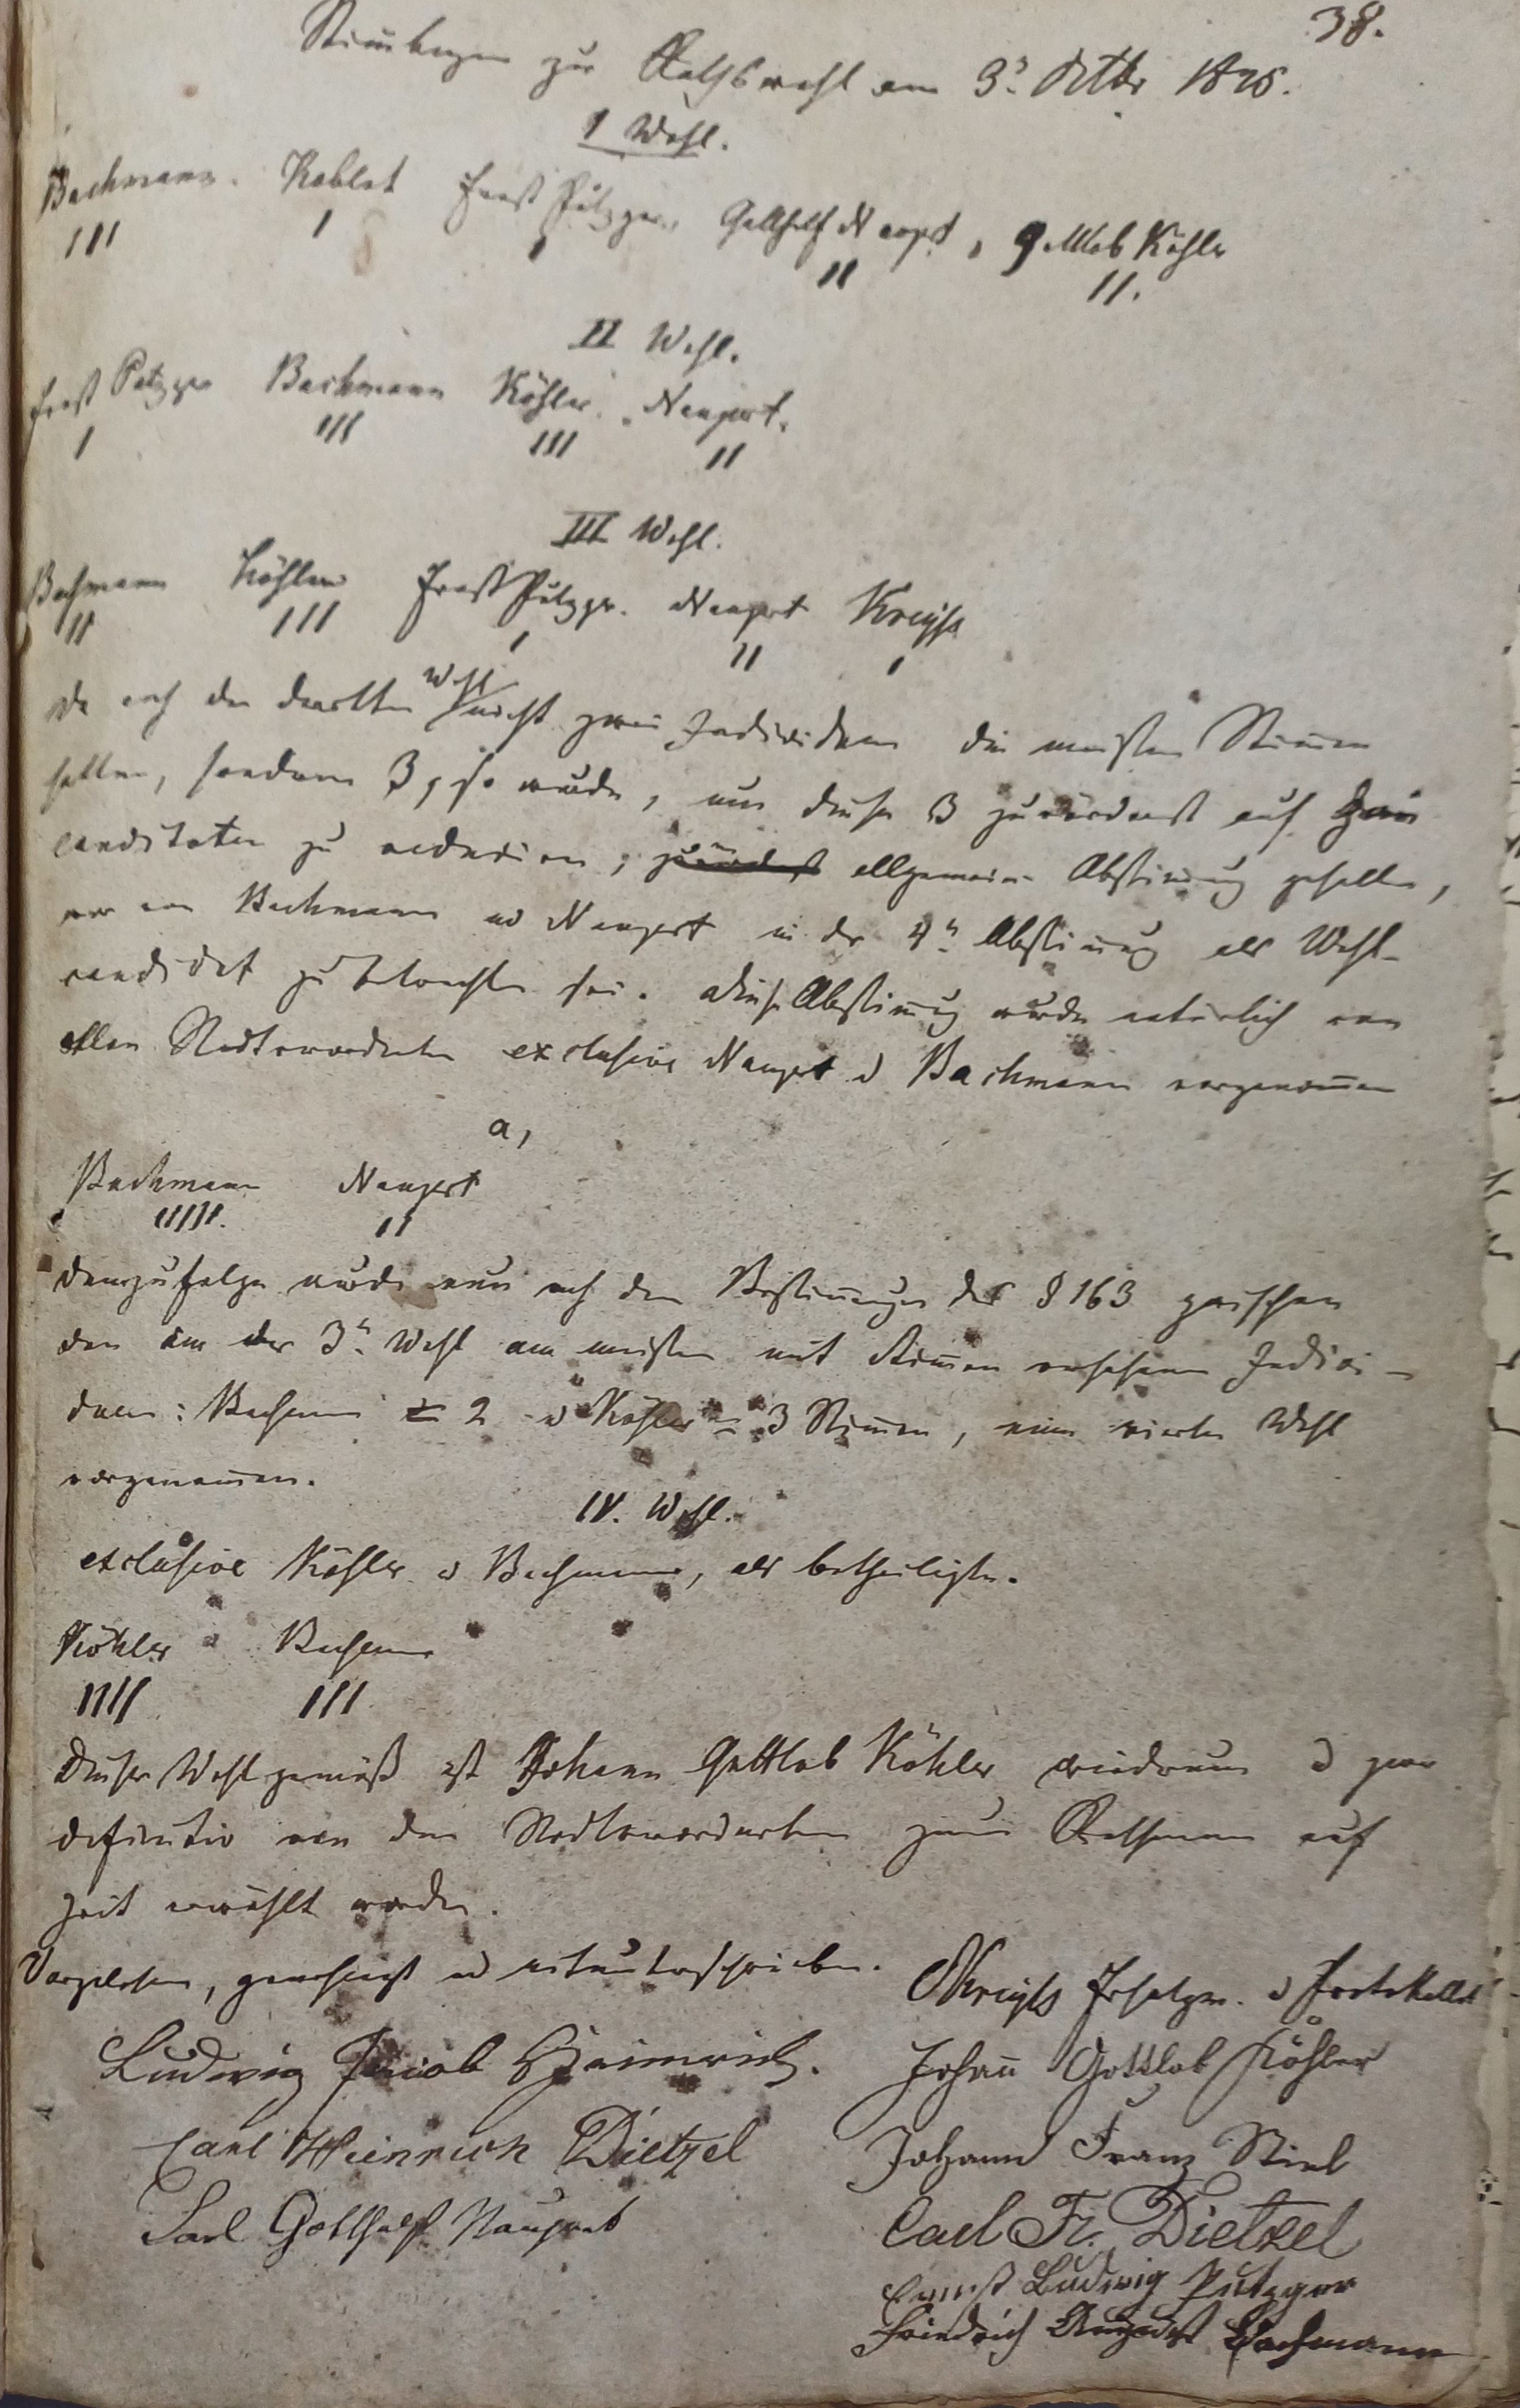 38.
Stimbogen zur Rathswahl am 3? Octbr 1875.
I Wahl.
Bachmann. Koblet Ernst Putzger, Gotthilf Naupert, Gottlob Köhler
III I I II II.
II Wahl.
Ernst Putzger Bachmann Köhler. Naupert.
I III III II
III Wahl.
Bachmann Köhler Ernst Putzger. Naupert Kreyß
II III I II I
Da auch der dritten Wahl nicht zwei Individuen die meisten Stimen
hatten, sondern 3, so wurde, um diese 3 zuvörderst auf zwei
Canditaten zu reduciren, zuvörderst allgemeine Abstimung gehalten,
wer von Bachmann u Naupert in der 4n Abstimung als Wahl-
candidat zu betrachten sei. Diese Abstimung wurde natürlich von
allen Stadtverordneten exclusive Naupert u Bachmann vorgenomen
a,
Bachmann Naupert
IIIII. II
demzufolge wurde nun nach den Bestimungen des § 163 zwischen
den in der 3n Wahl am meisten mit Stimen versehenen Indivi-
duen: Bachmann = 2 u Köhler = 3 Stimen, eine vierte Wahl
vorgenomen.
IV. Wahl.
exclusive Köhler u Bachmann, als betheiligte.
Köhler Bachmann
IIII III
Dieser Wahl gemäß ist Johann Gottlob Köhler wiederum u zwar
definitiv von den Stadtverordneten zum Rathsmann auf
Zeit erwählt worden.
Vorgelesen, genehmigt u mitunterschrieben.
Kreyß Ersatzm. u Protokollt
Ludwig Jacob Heinrich.
Johann Gottlob Köhler
Carl Heinrich Dietzel
Johann Franz Stiel
Carl Gotthilf Naupert
Carl Fr. Dietzel
Ernst Ludwig Putzger
Friedrich August Bachmann